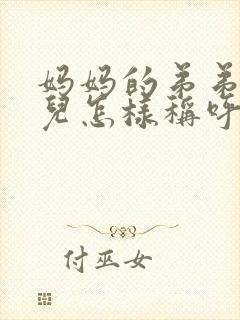 妈妈的弟弟
兒怎樣稱呼
付巫女